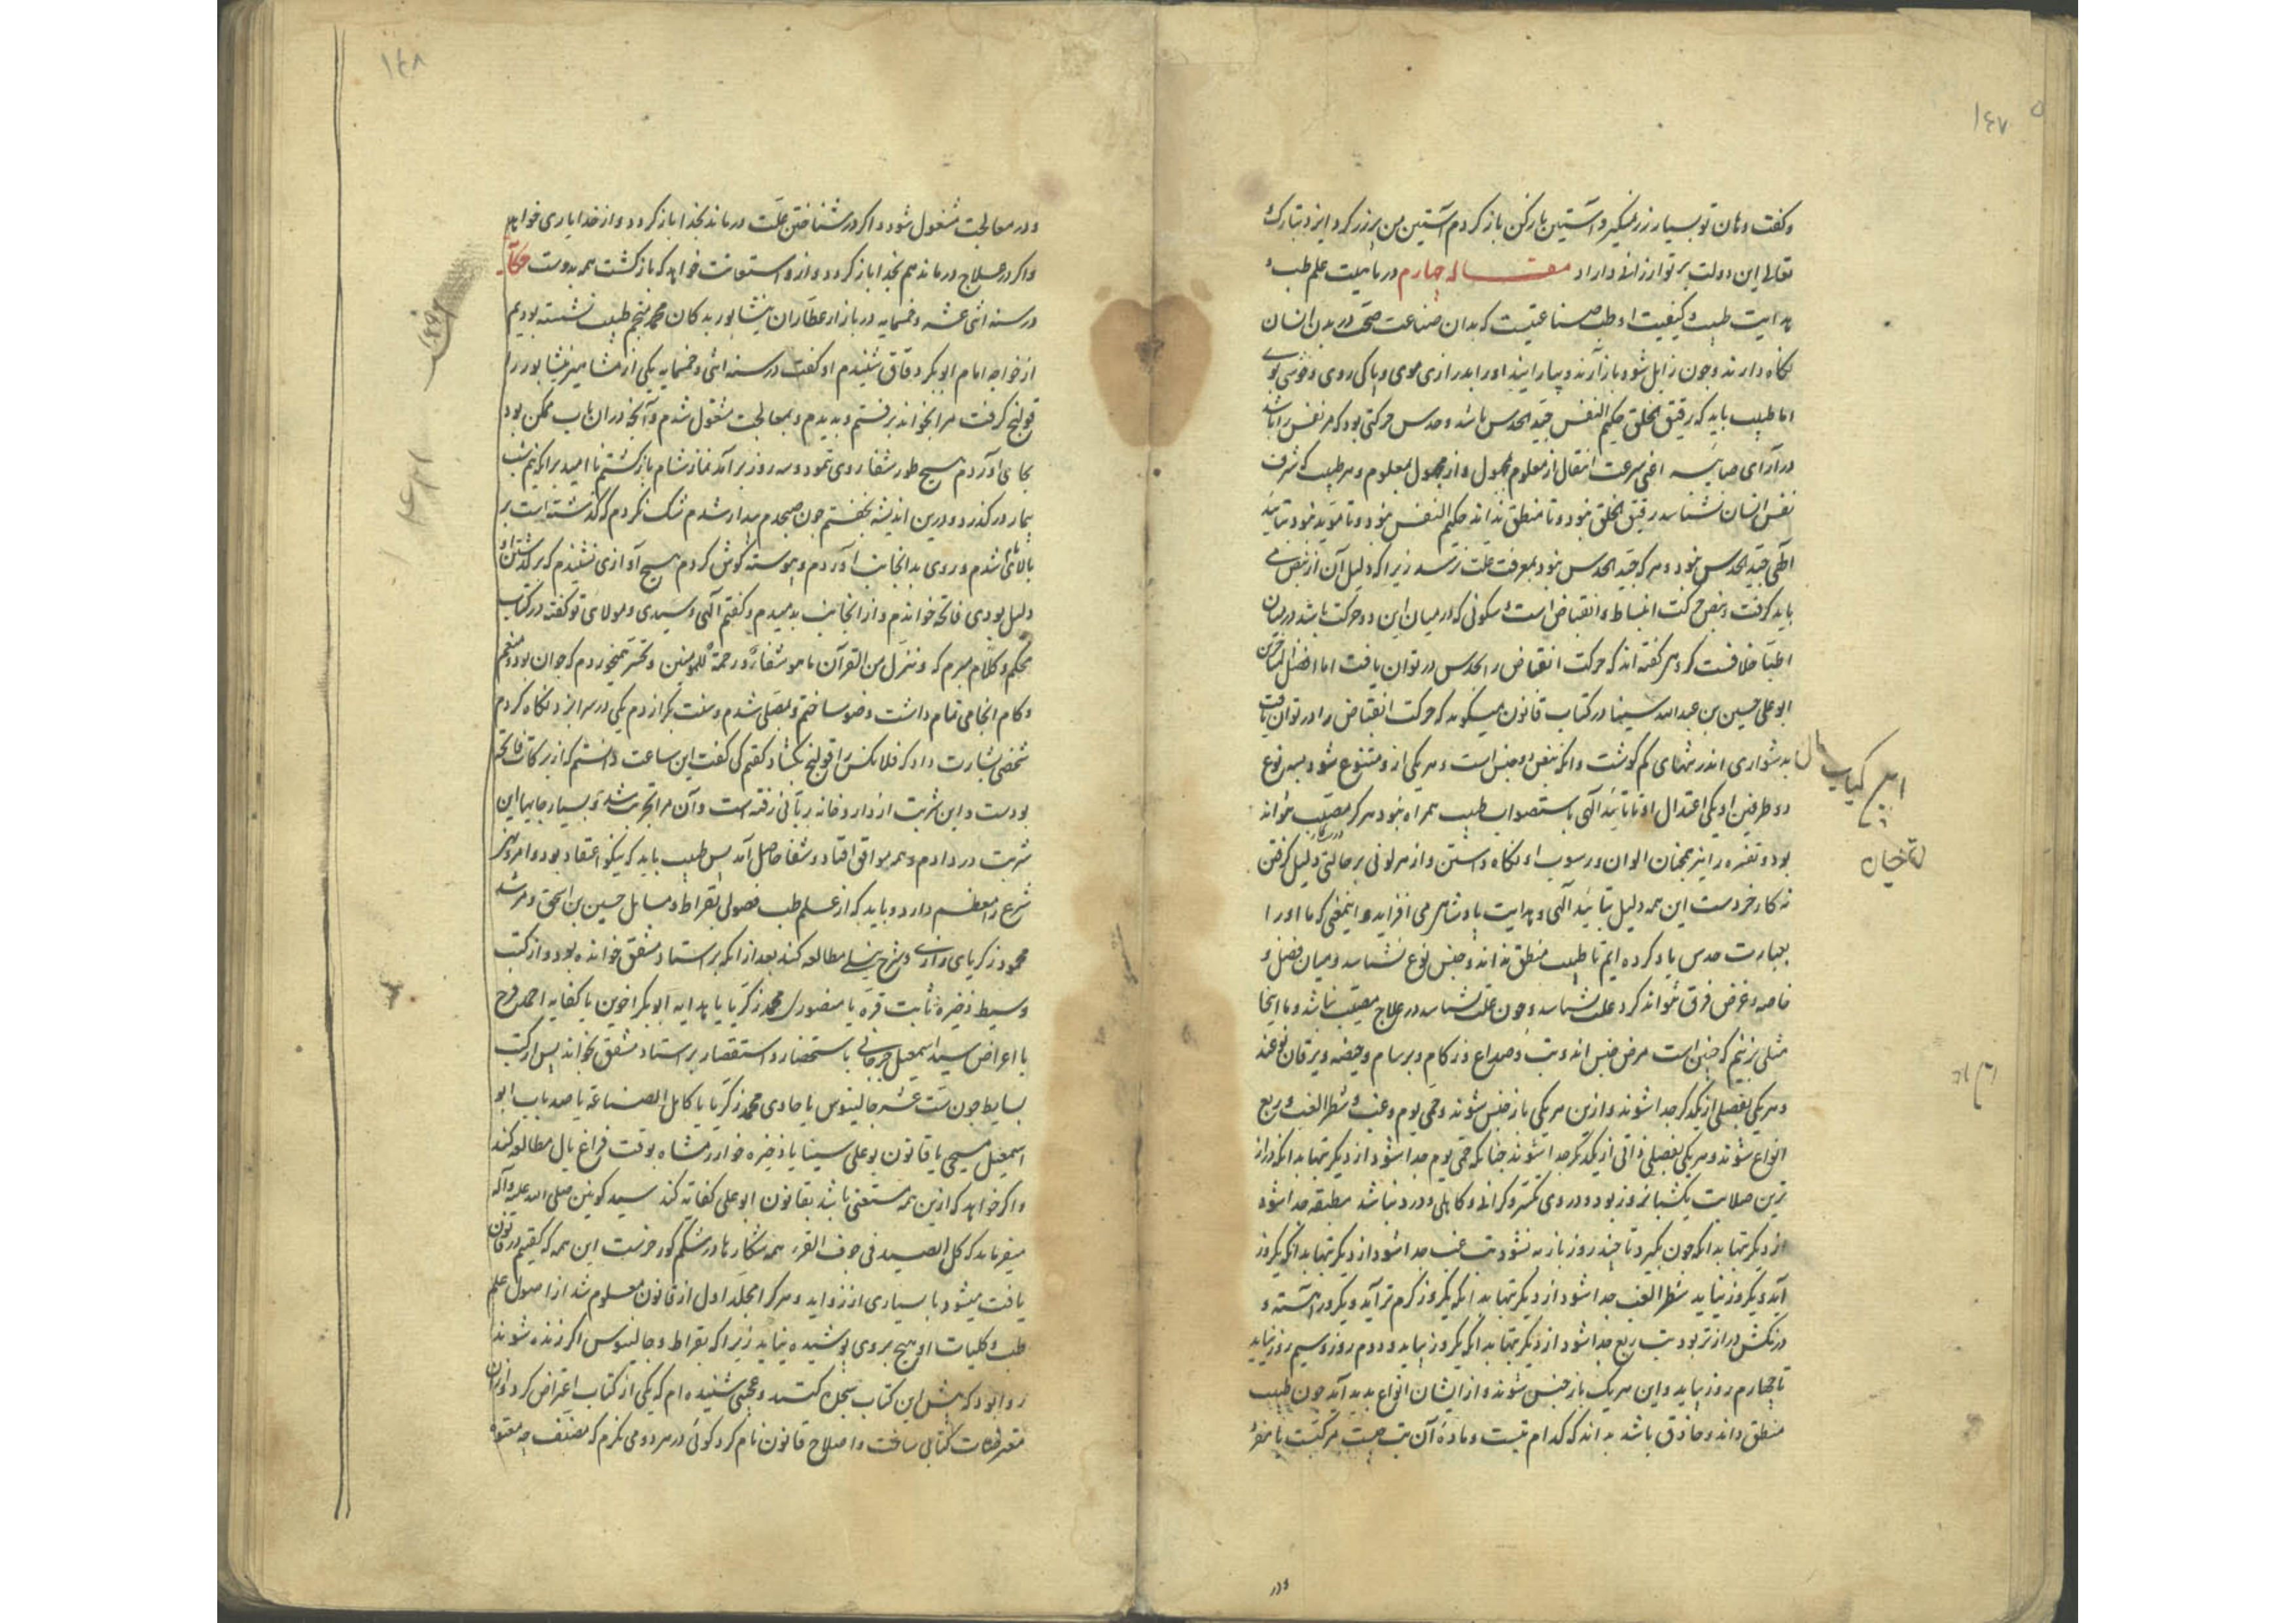 ۱۴۷
و گفت و هان تو بسیار زر میگیر و آستین باز کن باز کردم آستین من پر زر کرد ایزد تبارک و
تعالی این دولت بر تو ارزانی داراد مقاله چهارم در ماهیت علم طب و
هدایت طبیب و کیفیت او طب صناعتیست که بدان صناعت صحت در بدن انسان
نگاه دارند و چون زایل شود باز آرند و بیارایند او را بدرازی موی و پاکی روی و خوشی بوی
اما طبیب باید که رقیق الخلق حکیم النفس جید الحدس باشد و حدس حرکتی بود که مر نفس را باشد
در آرای صایبه اعنی سرعت انتقال از معلوم بمجهول و از مجهول بمعلوم و هر طبیب که شرف
نفس انسان نشناسد رقیق الخلق نبود و تا منطق نداند حکیم النفس نبود و تا موید نبود بتایید
الهی جید الحدس نبود و هر که جید الحدس نبود بمعرفت علت نرسد زیرا که دلیل آن از نبض می
باید گرفت و نبض حرکت انبساط و انقباض است و سکونی که در میان این دو حرکت باشد در میان
اطبا خلافست گروهی گفته اند که حرکت انقباض را بحدس در نتوان یافت اما افضل المتاخرین
ابو علی حسین بن عبد الله سینا در کتاب قانون میگوید که حرکت انقباض را در توان یافت
بدشواری اندر تنهای کم گوشت و آنکه نبض ده جنس است و هر یکی از و متنوع شود بسه نوع
دو طرفین او یکی اعتدال او تا تایید الهی باستصواب طبیب همراه نبود هرگز مصیب نتواند
بود و تفسره را نیز همچنان الوان و رسوب او نگاه داشتن و از هر لونی بر حالتی دلیل گرفتن
نه کار خردست این همه دلیل بتایید الهی و هدایت پادشاهی می افزاید و اینمعنی که ما او را
بعبارت حدس یاد کرده ایم تا طبیب منطق نداند و جنس نوع نشناسد و میان فصل و
خاصه و عرض فرق نتواند کرد علت نشناسد و چون علت نشناسد در علاج مصیب نباشد و ما اینجا
مثلی بزنیم که چنین است مرض جنس اند و تب و صداع و زکام و برسام و حصبه و یرقان نوعند
و هر یکی بفصلی از یکدیگر جدا شوند و ازین هر یکی باز جنس شوند و حمی یوم و غب و شطر الغب و ربع
انواع شوند و هر یکی بفصلی ذاتی از یکدیگر جدا شوند چنانکه حمی یوم جدا شود از دیگر تبها بدانکه دراز
ترین مدت یکشبانروز بود و درو تکسر و گرانی و کاهلی و درد نباشد مطبقه جدا شود
از دیگر تبها بدانکه چون بگیرد تا چند روز باز نه نشود تب غب جدا شود از دیگر تبها بدانکه یکروز
آید و یکروز نیاید شطر الغب جدا شود از دیگر تبها بدانکه یکروز گرم تر آید و یکروز آهسته و
درنگش درازتر بود تب ربع جدا شود از دیگر تبها بدانکه یکروز بیاید و دوم روز و سیم روز نیاید
تا چهارم روز بیاید و این هر یک باز جنس شوند و از ایشان انواع پدید آید چون طبیب
منطق داند و حاذق باشد بداند که کدام تبست و ماده آن تب چیست مرکبت یا مفرد
و در
۱۴۸
و در معالجت مشغول شود و اگر در شناختن علت درماند بخدا باز گردد و از خدا یاری خواهد
و اگر در علاج درماند هم بخدا باز گردد و از و استعانت خواهد که بازگشت همه بدوست حکایت
در سنه اثنی عشر و خمسمایه در بازار عطاران نیشابور بدکان محمد منجم طبیب نشسته بودیم
از خواجه امام ابوبکر دقاق شنیدم او گفت در سنه اثنی و خمسمایه یکی از مشاهیر نیشابور را
قولنج گرفت مرا بخواند برفتم و بدیدم و بمعالجت مشغول شدم و آنچه در آن باب ممکن بود
بجای آوردم هیچ طور شفا روی ننمود و سه روز بر آمد نماز شام بازگشتم نا امید بر آنکه نیم شب
بیمار درگذرد و درین اندیشه بخفتم چون صبحدم بیدار شدم شک نکردم که گذشته است بر
بالای بام شدم و روی بدانجانب آوردم و پیوسته گوش کردم هیچ آوازی نشنیدم که بر گذشتن او
دلیل بودی فاتحه خواندم و از آنجانب بدمیدم و گفتم الهی و سیدی و مولای تو گفته در کتاب
محکم و کلام مبرم که و ننزل من القرآن ما هو شفاء و رحمة للمومنین و تحسر میخوردم که جوان بود و منعم
و کام انجامی تمام داشت وضو ساختم و بمصلی شدم و سنت بگزاردم یکی در سرا بزد نگاه کردم
شخصی بشارت داد که فلانکس را قولنج بگشاد گفتم کی گفت این ساعت دانستم که از برکات فاتحه
بودست و این شربت از داروخانه ربانی رفته است و آن مرا تجربت شد و بسیار جایها این
شربت در دادم و همه موافق افتاد و شفا حاصل آمد پس طبیب باید که نیکو اعتقاد بود و امر و نهی
شرع را معظم دارد و باید که از علم طب فصول بقراط و مسایل حنین بن اسحق و مرشد
محمود زکریای رازی و شرح نیلی مطالعه کند بعد از آنکه بر استاد مشفق خوانده بود و از کتب
وسیط ذخیره ثابت قره یا منصوری محمد زکریا یا هدایه ابوبکر اخوین یا کفایه احمد فرح
یا اعراض سید اسمعیل جرجانی باستحضار و استقصار بر استاد مشفق بخواند پس از کتب
بسایط چون سته عشر جالینوس یا حاوی محمد زکریا یا کامل الصناعه یا صد باب ابو
اسمعیل مسیحی یا قانون بوعلی سینا یا ذخیره خوارزمشاه بوقت فراغ بال مطالعه کند
و اگر خواهد که ازین همه مستغنی باشد بقانون ابو علی کفایه کند سید کونین صلی الله علیه و آله
میفرماید که کل الصید فی جوف الفرا همه شکارها در شکم گور خرست این همه که گفتیم در قانون
یافت میشود با بسیاری از زواید و هر کرا مجلد اول از قانون معلوم شد از اصول علم
طب و کلیات او هیچ بر وی پوشیده نیاید زیرا که بقراط و جالینوس اگر زنده شوند
روا بود که پیش این کتاب سجده کنند و عجبی شنیده ام که یکی از کتاب اعتراض کرد و از آن
معترضات کتابی ساخت و اصلاح قانون نام کرد گوئی در هر دو می نگرم که مصنف چه معتوه